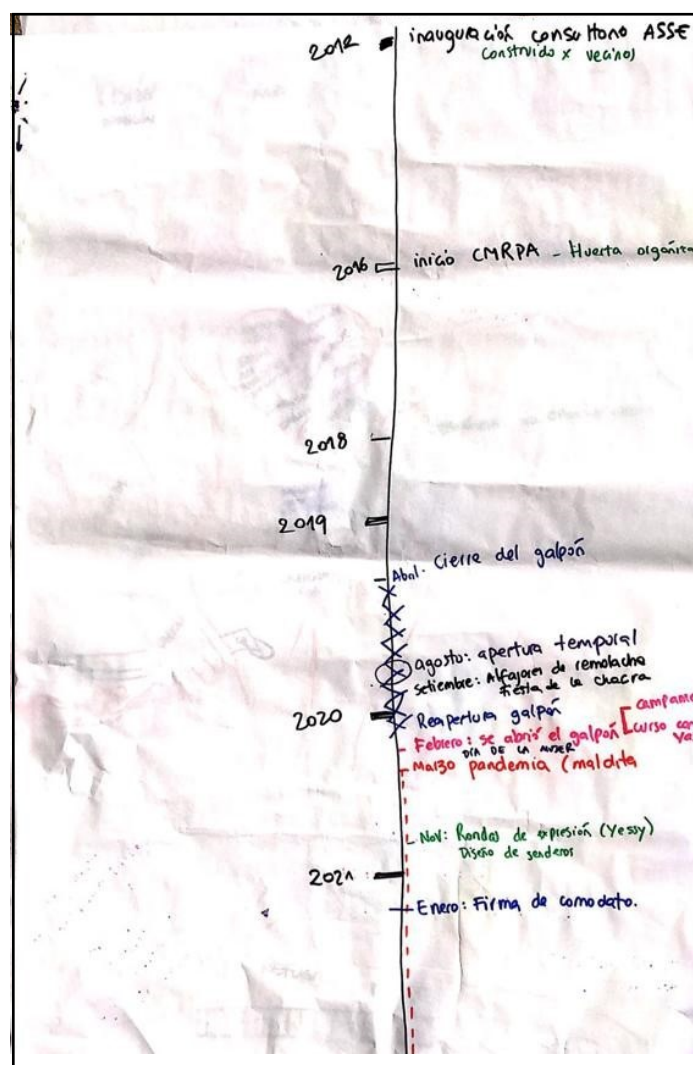 2012 inauguración consultorio ASSE
construido x vecinos
2016 inicio CMRPA - Huerta orgánica
2018
2019
Abril - cierre del galpón
agosto: apertura temporal
setiembre: Alfajores de remolacha
fiesta de la chacra
2020 Reapertura galpón
Febrero: se abrió el galpón [campame
curso
DÍA DE LA MUJER
Marzo pandemia (maldita
Nov: Rondas de expresión (Yessy)
Diseño de senderos
2021
Enero: Firma de comodato.